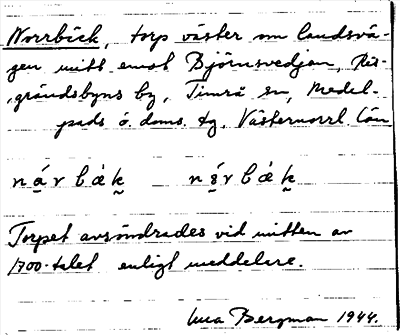 Norrbäck, torp väster om landsvä-
gen mitt emot Björnsvedjan, Näs-
grändsbyns by, Timrå sn, Medel-
pads ö. doms. tg. Västernorrl. län
Torpet avsöndrades vid mitten av
1700-talet enligt meddelare.
Bergman 1944.